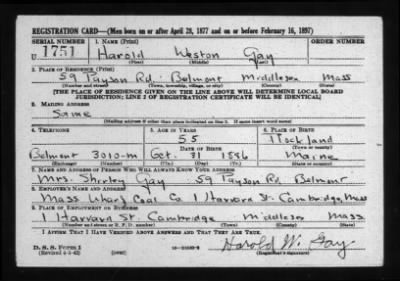 REGISTRATION CARD—(Men born on or after April 28, 1877 and on or before February 16, 1897)
SERIAL NUMBER 1. NAME (Print) ORDER NUMBER
U 1751 Harold Weston Gay
(First) (Middle) (Last)
2. PLACE OF RESIDENCE (Print)
59 Payson Rd. Belmont Middlesex Mass
(Number and street) (Town, township, village, or city) (County) (State)
[THE PLACE OF RESIDENCE GIVEN ON THE LINE ABOVE WILL DETERMINE LOCAL BOARD
JURISDICTION; LINE 2 OF REGISTRATION CERTIFICATE WILL BE IDENTICAL]
3. MAILING ADDRESS
Same
[Mailing address if other than place indicated on line 2. If same insert word same]
4. TELEPHONE 5. AGE IN YEARS 6. PLACE OF BIRTH
55 Rockland
DATE OF BIRTH (Town or county)
Belmont 3010-M Oct. 31 1886 Maine
(Exchange) (Number) (Mo.) (Day) (Yr.) (State or country)
7. NAME AND ADDRESS OF PERSON WHO WILL ALWAYS KNOW YOUR ADDRESS
Mrs. Shirley Gay 59 Payson Rd. Belmont
8. EMPLOYER'S NAME AND ADDRESS
Mass Wharf Coal Co 1 Harvard St. Cambridge, Mass
9. PLACE OF EMPLOYMENT OR BUSINESS
1 Harvard St. Cambridge Middlesex Mass
(Number and street or R. F. D. number) (Town) (County) (State)
I AFFIRM THAT I HAVE VERIFIED ABOVE ANSWERS AND THAT THEY ARE TRUE.
D. S. S. FORM 1 Harold W. Gay
(Revised 4-1-42) (Registrant's signature)